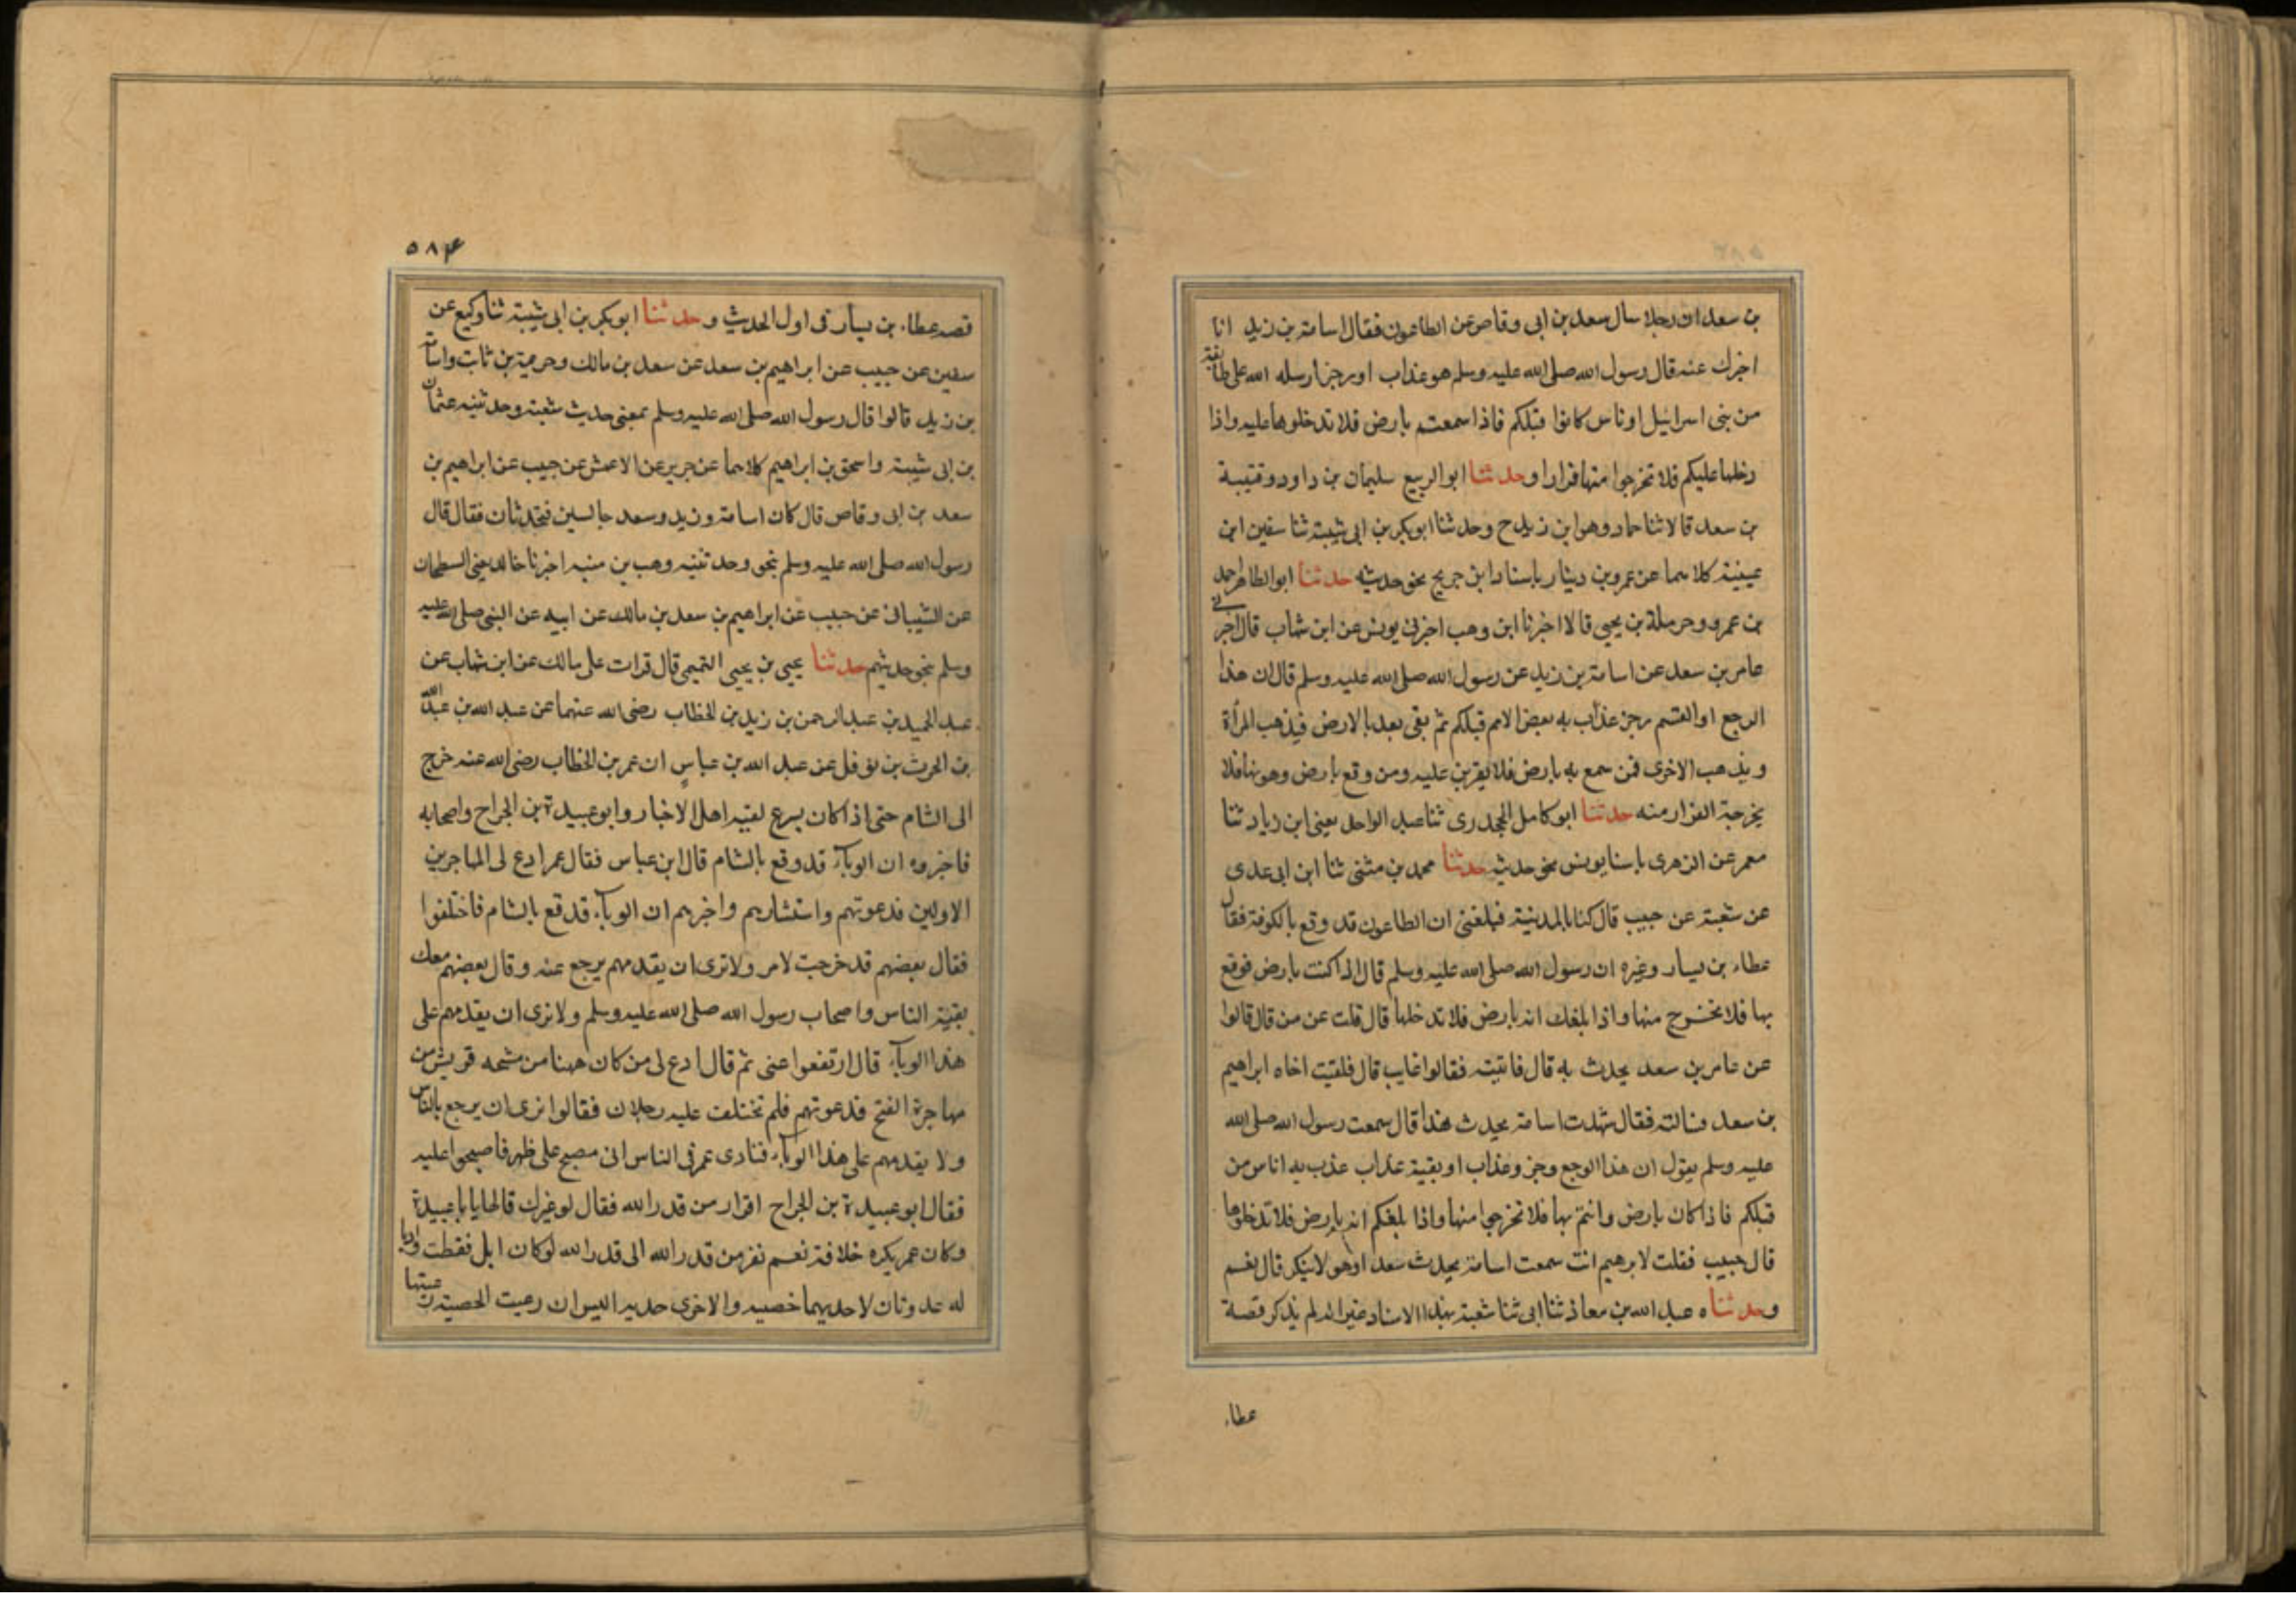 بن سعد ان رجلا سال سعد بن ابى وقاص عن الطاعون فقال اسامة بن زيد انا
اخبرك عنه قال رسول الله صلى الله عليه وسلم هو عذاب او رجز ارسله الله على طائفة
من بنى اسرائيل او ناس كانوا قبلكم فاذا سمعتم بارض فلا تدخلوها عليه واذا
دخلها عليكم فلا تخرجوا منها فرارا وحدثنا ابو الربيع سليمان بن داود وقتيبة
بن سعد قالا ثنا حماد وهو ابن زيد ح وحدثنا ابوبكر بن ابى شيبة ثنا سفين ابن
عيينة كلاهما عن عمرو بن دينار باسناد ابن جريج نحو حديثه حدثنا ابو الطاهر احمد
بن عمرو وحرملة بن يحيى قالا اخبرنا ابن وهب اخبرنى يونس عن ابن شهاب قال اخبرنى
عامر بن سعد عن اسامة بن زيد عن رسول الله صلى الله عليه وسلم قال ان هذا
الوجع او السقم رجز عذاب به بعض الامم قبلكم ثم بقى بعد بالارض فيذهب المرأة
ويذهب الاخرى فمن سمع به بارض فلا يقربن عليه ومن وقع بارض وهو بها فلا
يخرجبة الفرار منه حدثنا ابو كامل الجحدرى ثنا عبد الواحد يعنى ابن زياد ثنا
معمر عن الزهرى باسنا يونس نحو حديثه حدثنا محمد بن مثنى ثنا ابن ابى عدى
عن شعبة عن حبيب قال كنا بالمدنية فبلغنى ان الطاعون قد وقع بالكوفة فقال
عطاء بن يسار وغيره ان رسول الله صلى الله عليه وسلم قال اذا كنت بارض فوقع
بها فلا تخرج منها واذا بلغك انه بارض فلا تدخلها قال قلت عن من قال قالوا
عن عامر بن سعد يحدث به قال فاتيته فقالوا غايب قال فلقيت اخاه ابراهيم
بن سعد فسالته فقال شهدت اسامة يحدث هذا قال سمعت رسول الله صلى الله
عليه وسلم يقول ان هذا الوجع وجز وعذاب او بقية عذاب عذب به اناس من
قبلكم فاذا كان بارض وانتم بها فلا تخرجوا منها واذا بلغكم انه بارض فلا تدخلوها
قال حبيب فقلت لابرهيم انت سمعت اسامة يحدث سعد اوهو لا ينكر قال نعم
وحدثناه عبد الله بن معاذ ثنا ابى ثنا شعبة بهذا الاسناد غير انه لم يذكر قصة
عطاء
٥٨٤
قصه عطاء بن يسار فى اول الحديث وحدثنا ابوبكر بن ابى شيبة ثنا وكيع عن
سفين عن حبيب عن ابراهيم بن سعد عن سعد بن مالك وحزيمة بن ثابت واسامة
بن زيد قالوا قال رسول الله صلى الله عليه وسلم بمعنى حديث شعبة وحدثنيه عثمان
بن ابى شيبة واسحق بن ابراهيم كلاهما عن جرير عن الاعمش عن حبيب عن ابراهيم بن
سعد بن ابى وقاص قال كان اسامة وزيد وسعد جالسين فيتحدثان فقال قال
رسول الله صلى الله عليه وسلم بنحو وحدثنيه وهب بن منبه اخبرنا خالد يعنى السطحان
عن الشيبانى عن حبيب عن ابراهيم بن سعد بن مالك عن ابيه عن النبى صلى الله عليه
وسلم بنحو حديثهم حدثنا يحيى بن يحيى التميمى قال قرات على مالك عن ابن شهاب عن
عبد الحميد بن عبد الرحمن بن زيد بن الخطاب رضى الله عنهما عن عبد الله بن عبد الله
بن الحرث بن نوفل عن عبد الله بن عباس ان عمر بن الخطاب رضى الله عنه خرج
الى الشام حتى اذا كان بسرع لقيه اهل الاخبار وابو عبيدة بن الجراح واصحابه
فاخبروه ان الوباء قد وقع بالشام قال ابن عباس فقال عمر ادع لى المهاجرين
الاولين فدعوتهم واستشارهم واخبرهم ان الوباء قد قع بالشام فاختلفوا
فقال بعضهم قد خرجت لامر ولا نرى ان يقدمهم يرجع عنه وقال بعضهم معك
بقية الناس واصحاب رسول الله صلى الله عليه وسلم ولا نرى ان يقدمهم على
هذا الوباء قال ارتفعوا عنى ثم قال ادع لى من كان ههنا من مشحه قريش من
مهاجرة الفتح فدعوتهم فلم تختلف عليه رجلان فقالوا نرى ان يرجع بالناس
ولا يقدمهم على هذا الوباء فنادى عمر فى الناس انى مصبح على ظهر فاصبحوا عليه
فقال ابو عبيدة بن الجراح افرار من قدر الله فقال لو غيرك قالها يا با عبيدة
وكان عمر يكره خلافة نعم نفر من قدر الله الى قدر الله لو كان ابل فقطت واديا
له عدوتان لاحديهما خصيبه والاخرى حديه اليس ان رعيت الحصيبة رعيتها